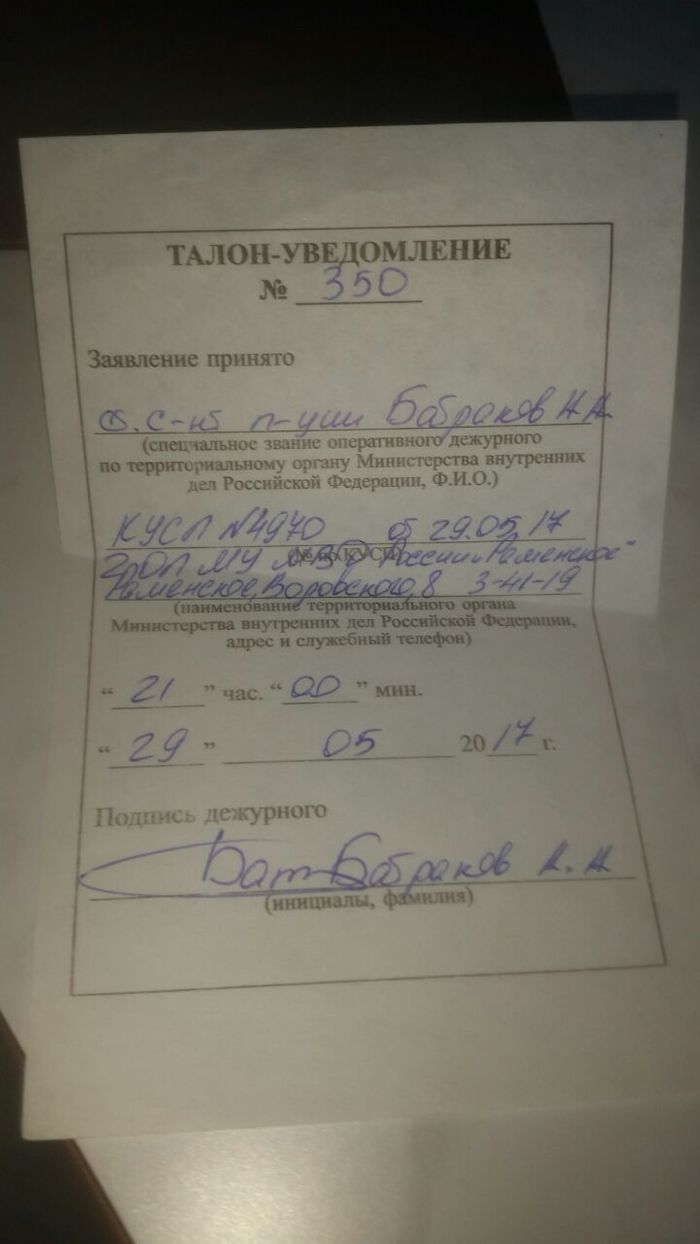 ТАЛОН-УВЕДОМЛЕНИЕ
№ 350
Заявление принято
п-ции Бабраков А.А.
(специальное звание оперативного дежурного
по территориальному органу Министерства внутренних
дел Российской Федерации, Ф.И.О.)
КУСП №4970 от 29.05.17
(№ по КУСП)
2 ОП МУ МВД России "Раменское"
Раменское, Воровского, 8 3-41-19
(наименование территориального органа
Министерства внутренних дел Российской Федерации,
адрес и служебный телефон)
“ 21 ” час. “ 00 ” мин.
“ 29 ” 05 20 17 г.
Подпись дежурного
Бабраков А.А.
(инициалы, фамилия)